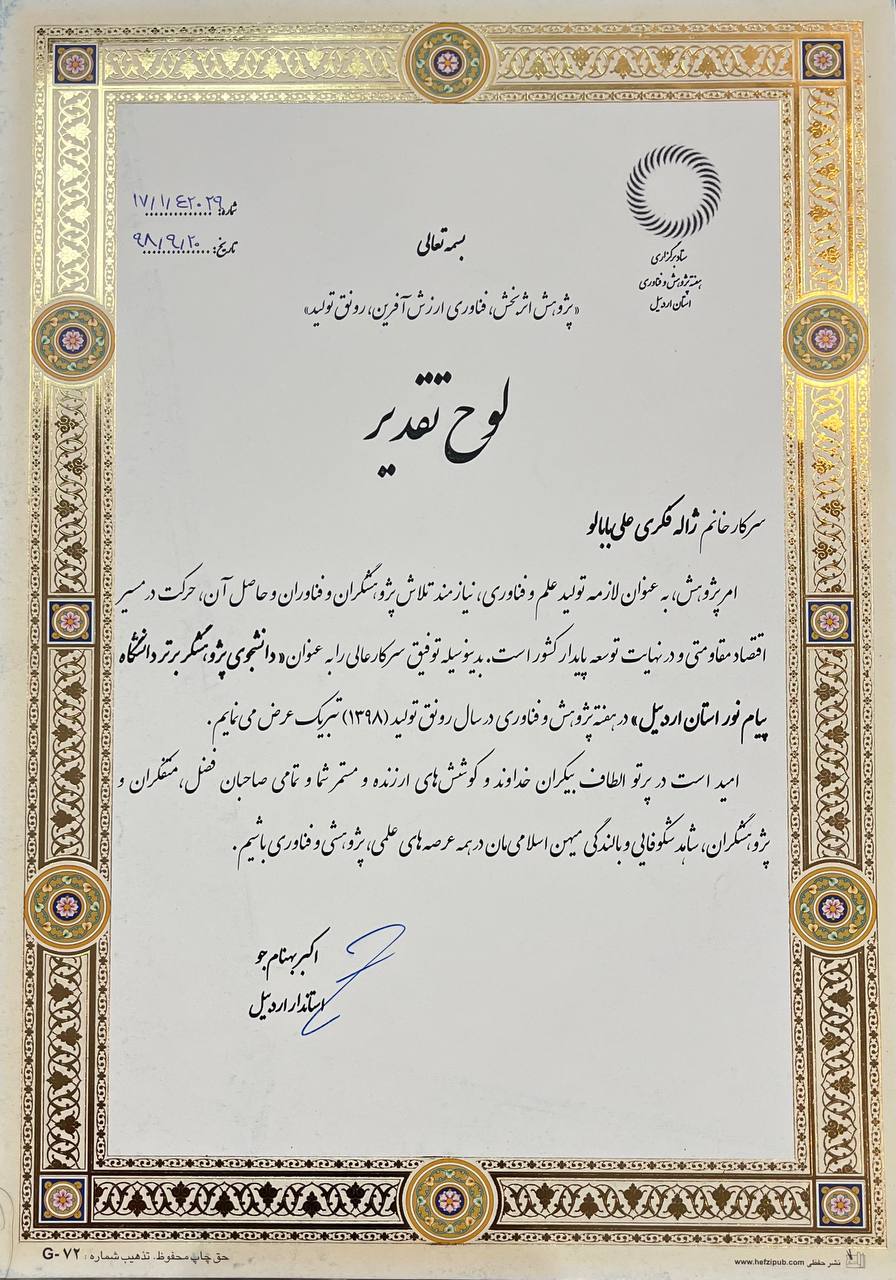 ستاد برگزاری
هفته پژوهش و فناوری
استان اردبیل
شماره: ۱۷/۱/۴۲۰۲۹
تاریخ: ۹۸/۹/۲۰
بسمه تعالی
«پژوهش اثربخش، فناوری ارزش آفرین، رونق تولید»
لوح تقدیر
سرکار خانم ژاله فکری علی بابالو
امر پژوهش، به عنوان لازمه تولید علم و فناوری، نیازمند تلاش پژوهشگران و فناوران و حاصل آن، حرکت در مسیر
اقتصاد مقاومتی و در نهایت توسعه پایدار کشور است. بدینوسیله توفیق سرکارعالی را به عنوان «دانشجوی پژوهشگر برتر دانشگاه
پیام نور استان اردبیل» در هفته پژوهش و فناوری در سال رونق تولید (۱۳۹۸) تبریک عرض می نمایم.
امید است در پرتو الطاف بیکران خداوند و کوشش های ارزنده و مستمر شما و تمامی صاحبان فضل، متفکران و
پژوهشگران، شاهد شکوفایی و بالندگی میهن اسلامی مان در همه عرصه های علمی، پژوهشی و فناوری باشیم.
اکبر بهنام جو
استاندار اردبیل
نشر حفظی www.hefzipub.com
حق چاپ محفوظ. تذهیب شماره: G-۷۲